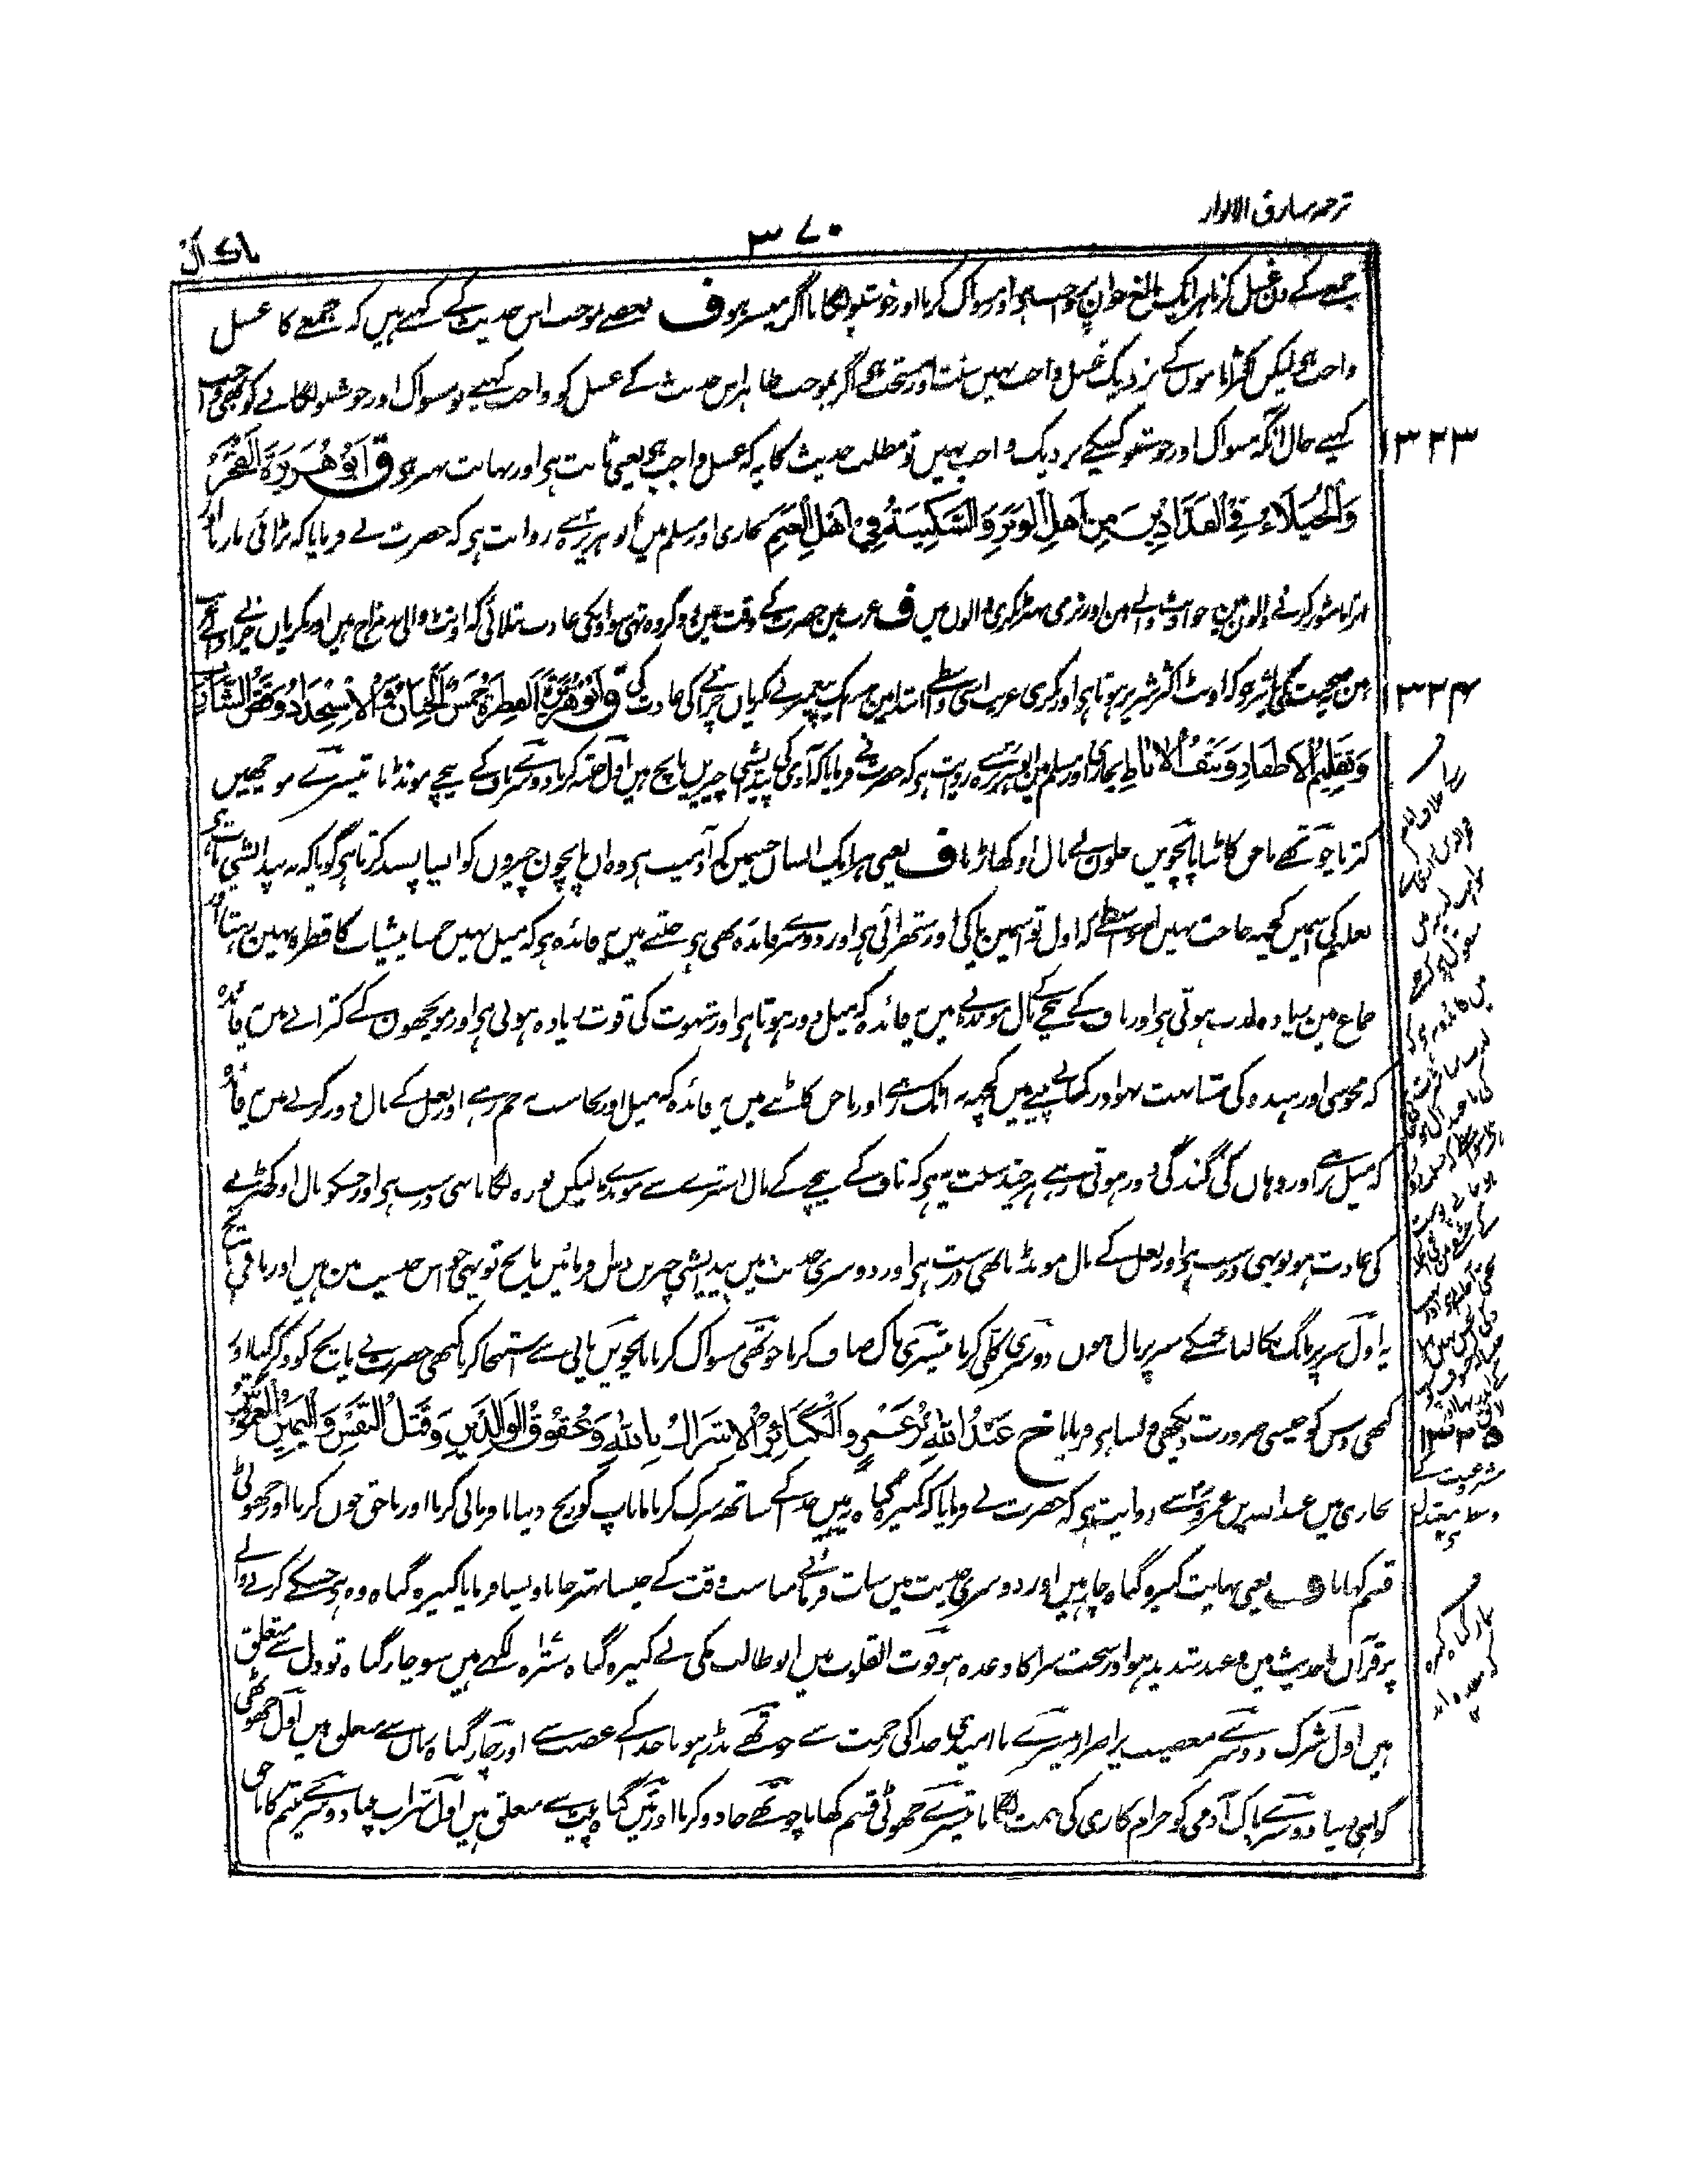 ترجمہ مشارق الانوار
۳۷۰
جمعے کے دن غسل کرنا ہر ایک بالغ جوان پر واجب ہی اور مسواک کرنا اور خوشبو لگانا اگر میسر ہو ف بعضے بموجب اس حدیث کے کہتے ہیں کہ جمعے کا غسل
واجب ہی لیکن اکثر اماموں کے نزدیک غسل واجب نہیں سنت اور مستحب ہی اگر بموجب ظاہر اس حدیث کے غسل کو واجب کہیے تو مسواک اور خوشبو لگانے کو بھی واجب
کہیے حال آنکہ مسواک اور خوشبو کسیکے نزدیک واجب نہیں تو مطلب حدیث کا یہ کہ غسل واجب ہی یعنی ثابت ہی اور نہایت بہتر ہی ق اَبُو هُرَيْرَةَ اَلْفَخْرُ
۱۳۲۳
وَالْخُيَلَاءُ فِي الْفَدَّادِيْنَ مِنْ اَهْلِ الْوَبَرِ وَالسَّكِيْنَةُ فِيْ اَهْلِ الْغَنَمِ بخاری اور مسلم میں ابو ہریرہ سے روایت ہی کہ حضرت نے فرمایا کہ بڑائی مارنا اور
اترانا شور کرنے والوں میں جو اونٹ والے ہیں اور نرمی بھیڑ بکری والوں میں ف عرب میں حضرت کے وقت میں دو گروہ تھے سو اونکی عادت بتلائی کہ اونٹ والے بد مزاج ہیں اور بکریاں چرانے والے غریب
ہیں صحبت کی تاثیر ہی کہ اونٹ اکثر شریر ہوتا ہی اور بکری غریب اسی واسطے ابتدا میں ہر ایک پیغمبر نے بکریاں چرانے کی عادت کی ق اَبُوْ هُرَيْرَةَ اَلْفِطْرَةُ خَمْسٌ اَلْخِتَانُ وَالْاِسْتِحْدَادُ وَقَصُّ الشَّارِبِ
۱۳۲۴
وَتَقْلِيْمُ الْاَظْفَارِ وَنَتْفُ الْاٰبَاطِ بخاری اور مسلم میں ابو ہریرہ سے روایت ہی کہ حضرت نے فرمایا کہ آدمی کی پیدایشی چیزیں پانچ ہیں اول ختنہ کرنا دوسرے ناف کے نیچے مونڈنا تیسرے مونچھیں
کترنا چوتھے ناخن کاٹنا پانچویں بغلوں کے بال اوکھاڑنا ف یعنی ہر ایک انسان جسمیں کہ آدمیت ہی وہ ان پانچوں چیزوں کو ایسا پسند کرتا ہی گویا کہ یہ پیدایشی بات ہی
تعلیم کی اسمیں کچھ حاجت نہیں اسواسطے کہ اول تو اسمیں پاکی اور ستھرائی ہی اور دوسرے فائدہ بھی ہی ختنے میں یہ فائدہ ہی کہ میل نہیں جمتا پیشاب کا قطرہ نہیں رہتا اور
جماع میں زیادہ لذت ہوتی ہی اور ناف کے نیچے کے بال مونڈنے میں یہ فائدہ کہ میل دور ہوتا ہی اور شہوت کی قوت زیادہ ہوتی ہی اور مونچھوں کے کترانے میں یہ فائدہ
کہ مجوسی اور ہندو کی مشابہت نہو اور کھانے پینے میں کچھ نہ اٹک رہے اور ناخن کاٹنے میں یہ فائدہ کہ میل اور نجاست نہ جم رہے اور بغل کے بال دور کرنے میں یہ فائدہ
کہ میل نرہے اور وہاں کی گندگی دور ہوتی رہے ہر چند سنت یہ ہی کہ ناف کے نیچے کے بال استرے سے مونڈے لیکن نورہ لگانا بھی درست ہی اور جسکو بال اوکھیڑنے
کی عادت ہو تو بھی درست ہی اور بغل کے بال مونڈنا بھی درست ہی اور دوسری حدیث میں پیدایشی چیزیں دس فرمائیں پانچ تو یہی جو اس حدیث میں ہیں اور باقی پانچ
یہ اول سر پر مانگ نکالنا جسکے سر پر بال ہوں دوسری کلی کرنا تیسری ناک صاف کرنا چوتھی مسواک کرنا پانچویں پانی سے استنجا کرنا کبھی حضرت نے پانچ کو ذکر کیا اور
کبھی دس کو جیسی ضرورت دیکھی ویسا ہی فرمایا خ عَبْدُ اللّٰهِ بْنُ عَمْرٍو اَلْكَبَائِرُ الْاِشْرَاكُ بِاللّٰهِ وَعُقُوْقُ الْوَالِدَيْنِ وَقَتْلُ النَّفْسِ وَالْيَمِيْنُ الْغَمُوْسُ
۱۳۲۵
بخاری میں عبد اللہ بن عمرو سے روایت ہی کہ حضرت نے فرمایا کہ کبیرہ گناہ یہ ہیں خدا کے ساتھ شرک کرنا ماباپ کو رنج دینا نافرمانی کرنا اور ناحق خون کرنا اور جھوٹی
قسم کھانا ف یعنی نہایت کبیرہ گناہ چار ہیں اور دوسری حدیث میں سات فرمائے مناسب وقت کے جیسا بہتر جانا ویسا فرمایا کبیرہ گناہ وہ ہی جسکے کرنے والے
پر قرآن یا حدیث میں وعید شدید ہو اور سخت سزا کا وعدہ ہو قوت القلوب میں ابو طالب مکی نے کبیرہ گناہ سترہ لکھے ہیں سو چار گناہ تو دل سے متعلق
ہیں اول شرک دوسرے معصیت پر اصرار تیسرے نا امیدی خدا کی رحمت سے چوتھے نڈر ہونا خدا کے غضب سے اور چار گناہ زبان سے متعلق ہیں اول جھوٹی
گواہی دینا دوسرے پاک آدمی کو حرام کاری کی تہمت لگانا تیسرے جھوٹی قسم کھانا چوتھے جادو کرنا اور تین گناہ پیٹ سے متعلق ہیں اول شراب پینا دوسرے یتیم کا ناحق